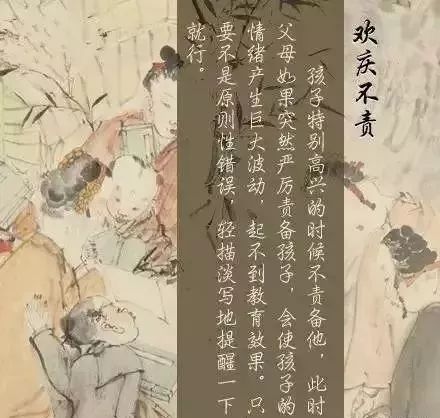 欢庆不责
孩子特别高兴的时候不责备他，此时
父母如果突然严厉责备孩子，会使孩子的
情绪产生巨大波动，起不到教育效果。只
要不是原则性错误，轻描淡写地提醒一下
就行。